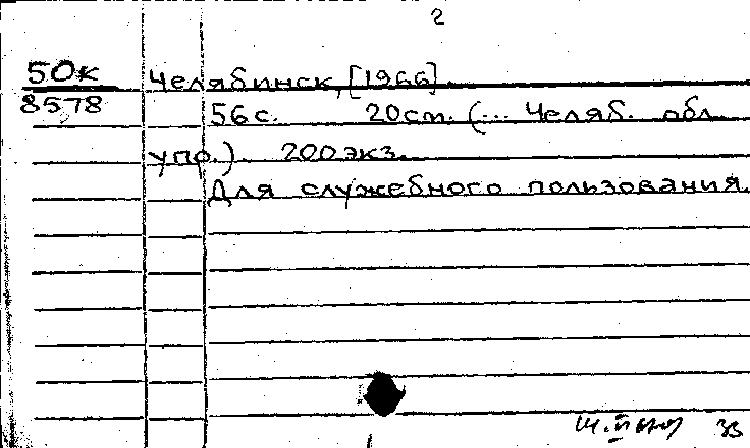 2
50к
8578
Челябинск, [1966]
56 с. 20 см. (... Челяб. обл.
упр.). 200 экз.
Для служебного пользования.